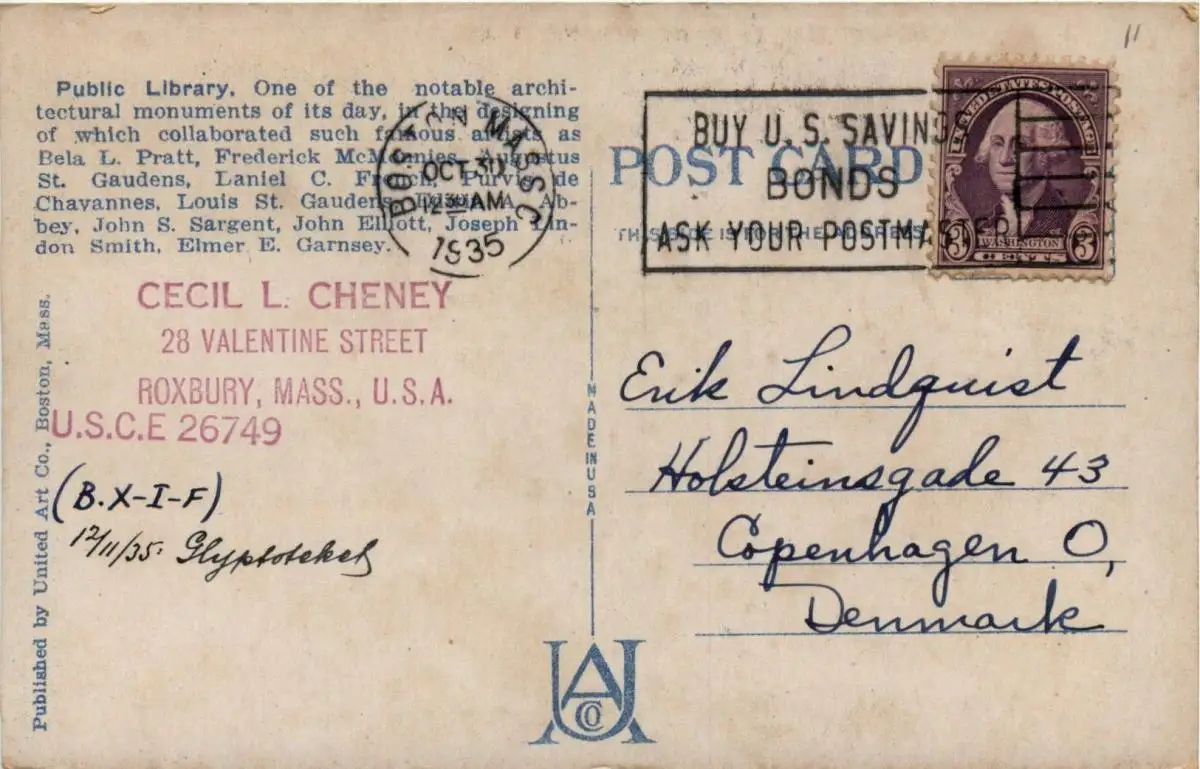 Public Library. One of the notable archi-
tectural monuments of its day, in the designing
of which collaborated such famous artists as
Bela L. Pratt, Frederick McMonnies, Augustus
St. Gaudens, Laniel C. French, Purvis de
Chavannes, Louis St. Gaudens, Edwin A. Ab-
bey, John S. Sargent, John Elliott, Joseph Lin-
don Smith, Elmer E. Garnsey.
BOSTON MASS
OCT 30
12 30 AM
1935
BUY U.S. SAVINGS
BONDS
ASK YOUR POSTMASTER
POST CARD
THIS SIDE IS FOR THE ADDRESS
UNITED STATES POSTAGE
WASHINGTON
3 CENTS 3
11
CECIL L. CHENEY
28 VALENTINE STREET
ROXBURY, MASS., U.S.A.
U.S.C.E 26749
(B.X-I-F)
12/11/35. Glyptoteket
Published by United Art Co., Boston, Mass.
MADE IN USA
Erik Lindquist
Holsteinsgade 43
Copenhagen O,
Denmark
UA CO